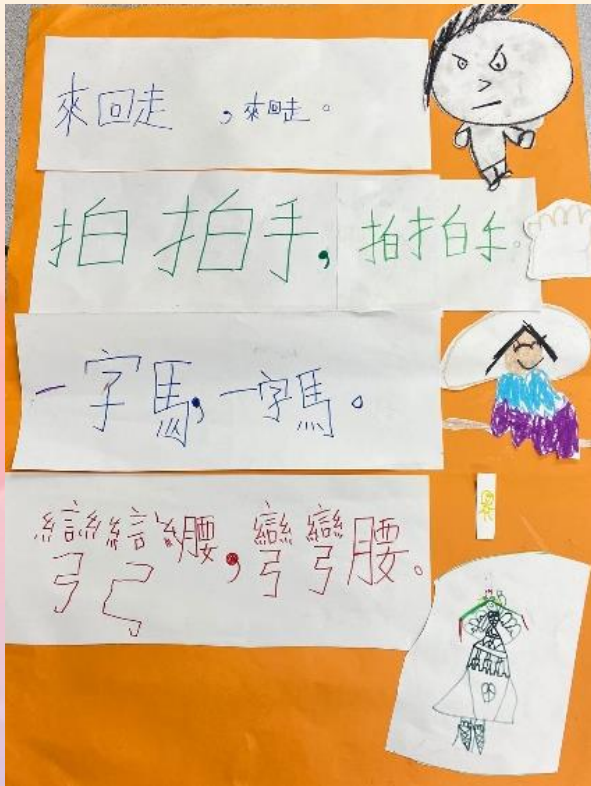 來回走，來回走。
拍拍手，拍拍手。
一字馬，一字馬。
彎彎腰，彎彎腰。